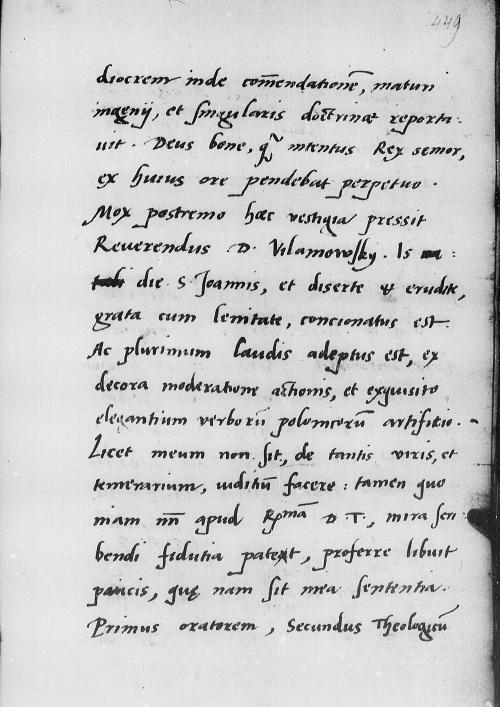 449
diocrem inde com̄endationē, maturi
ingenij, et singularis doctrinæ reporta:
uit. Deus bone, intentus Rex senior,
ex huius ore pendebat perpetuo.
Mox postremo hæc vestigia pressit
Reverendus D. Vilamowsky. Is
die S Joannis, et diserte & erudite,
grata cum lenitate, concionatus est.
Ac plurimum laudis adeptus est, ex
decora moderatione actionis, et exquisito
elegantium verborū polonicorū artifitio.
Licet meum non sit, de tantis viris, et
temerarium, iuditiū facere: tamen quo
niam apud R̄p̄mā D T., mira scri
bendi fidutia patet, proferre libuit
paucis, quę nam sit mea sententia.
Primus oratorem, Secundus Theologicū